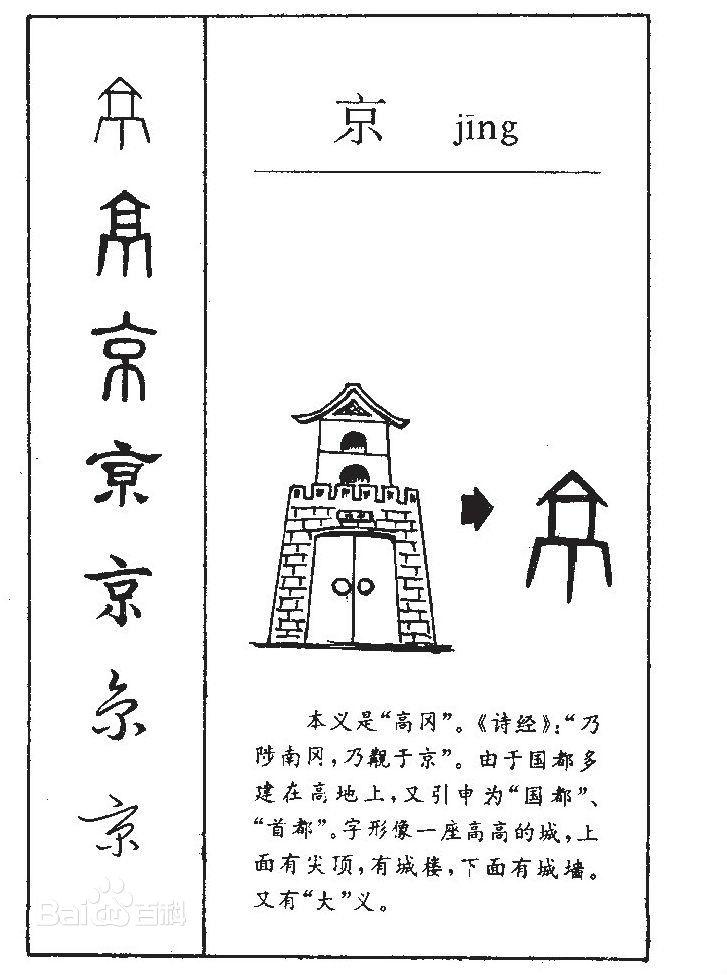 京 jīng
京
京
京
京
京
京
京
本义是“高冈”。《诗经》：“乃
陟南冈，乃觀于京”。由于国都多
建在高地上，又引申为“国都”、
“首都”。字形像一座高高的城，上
面有尖顶，有城楼，下面有城墙。
又有“大”义。
Bai百科